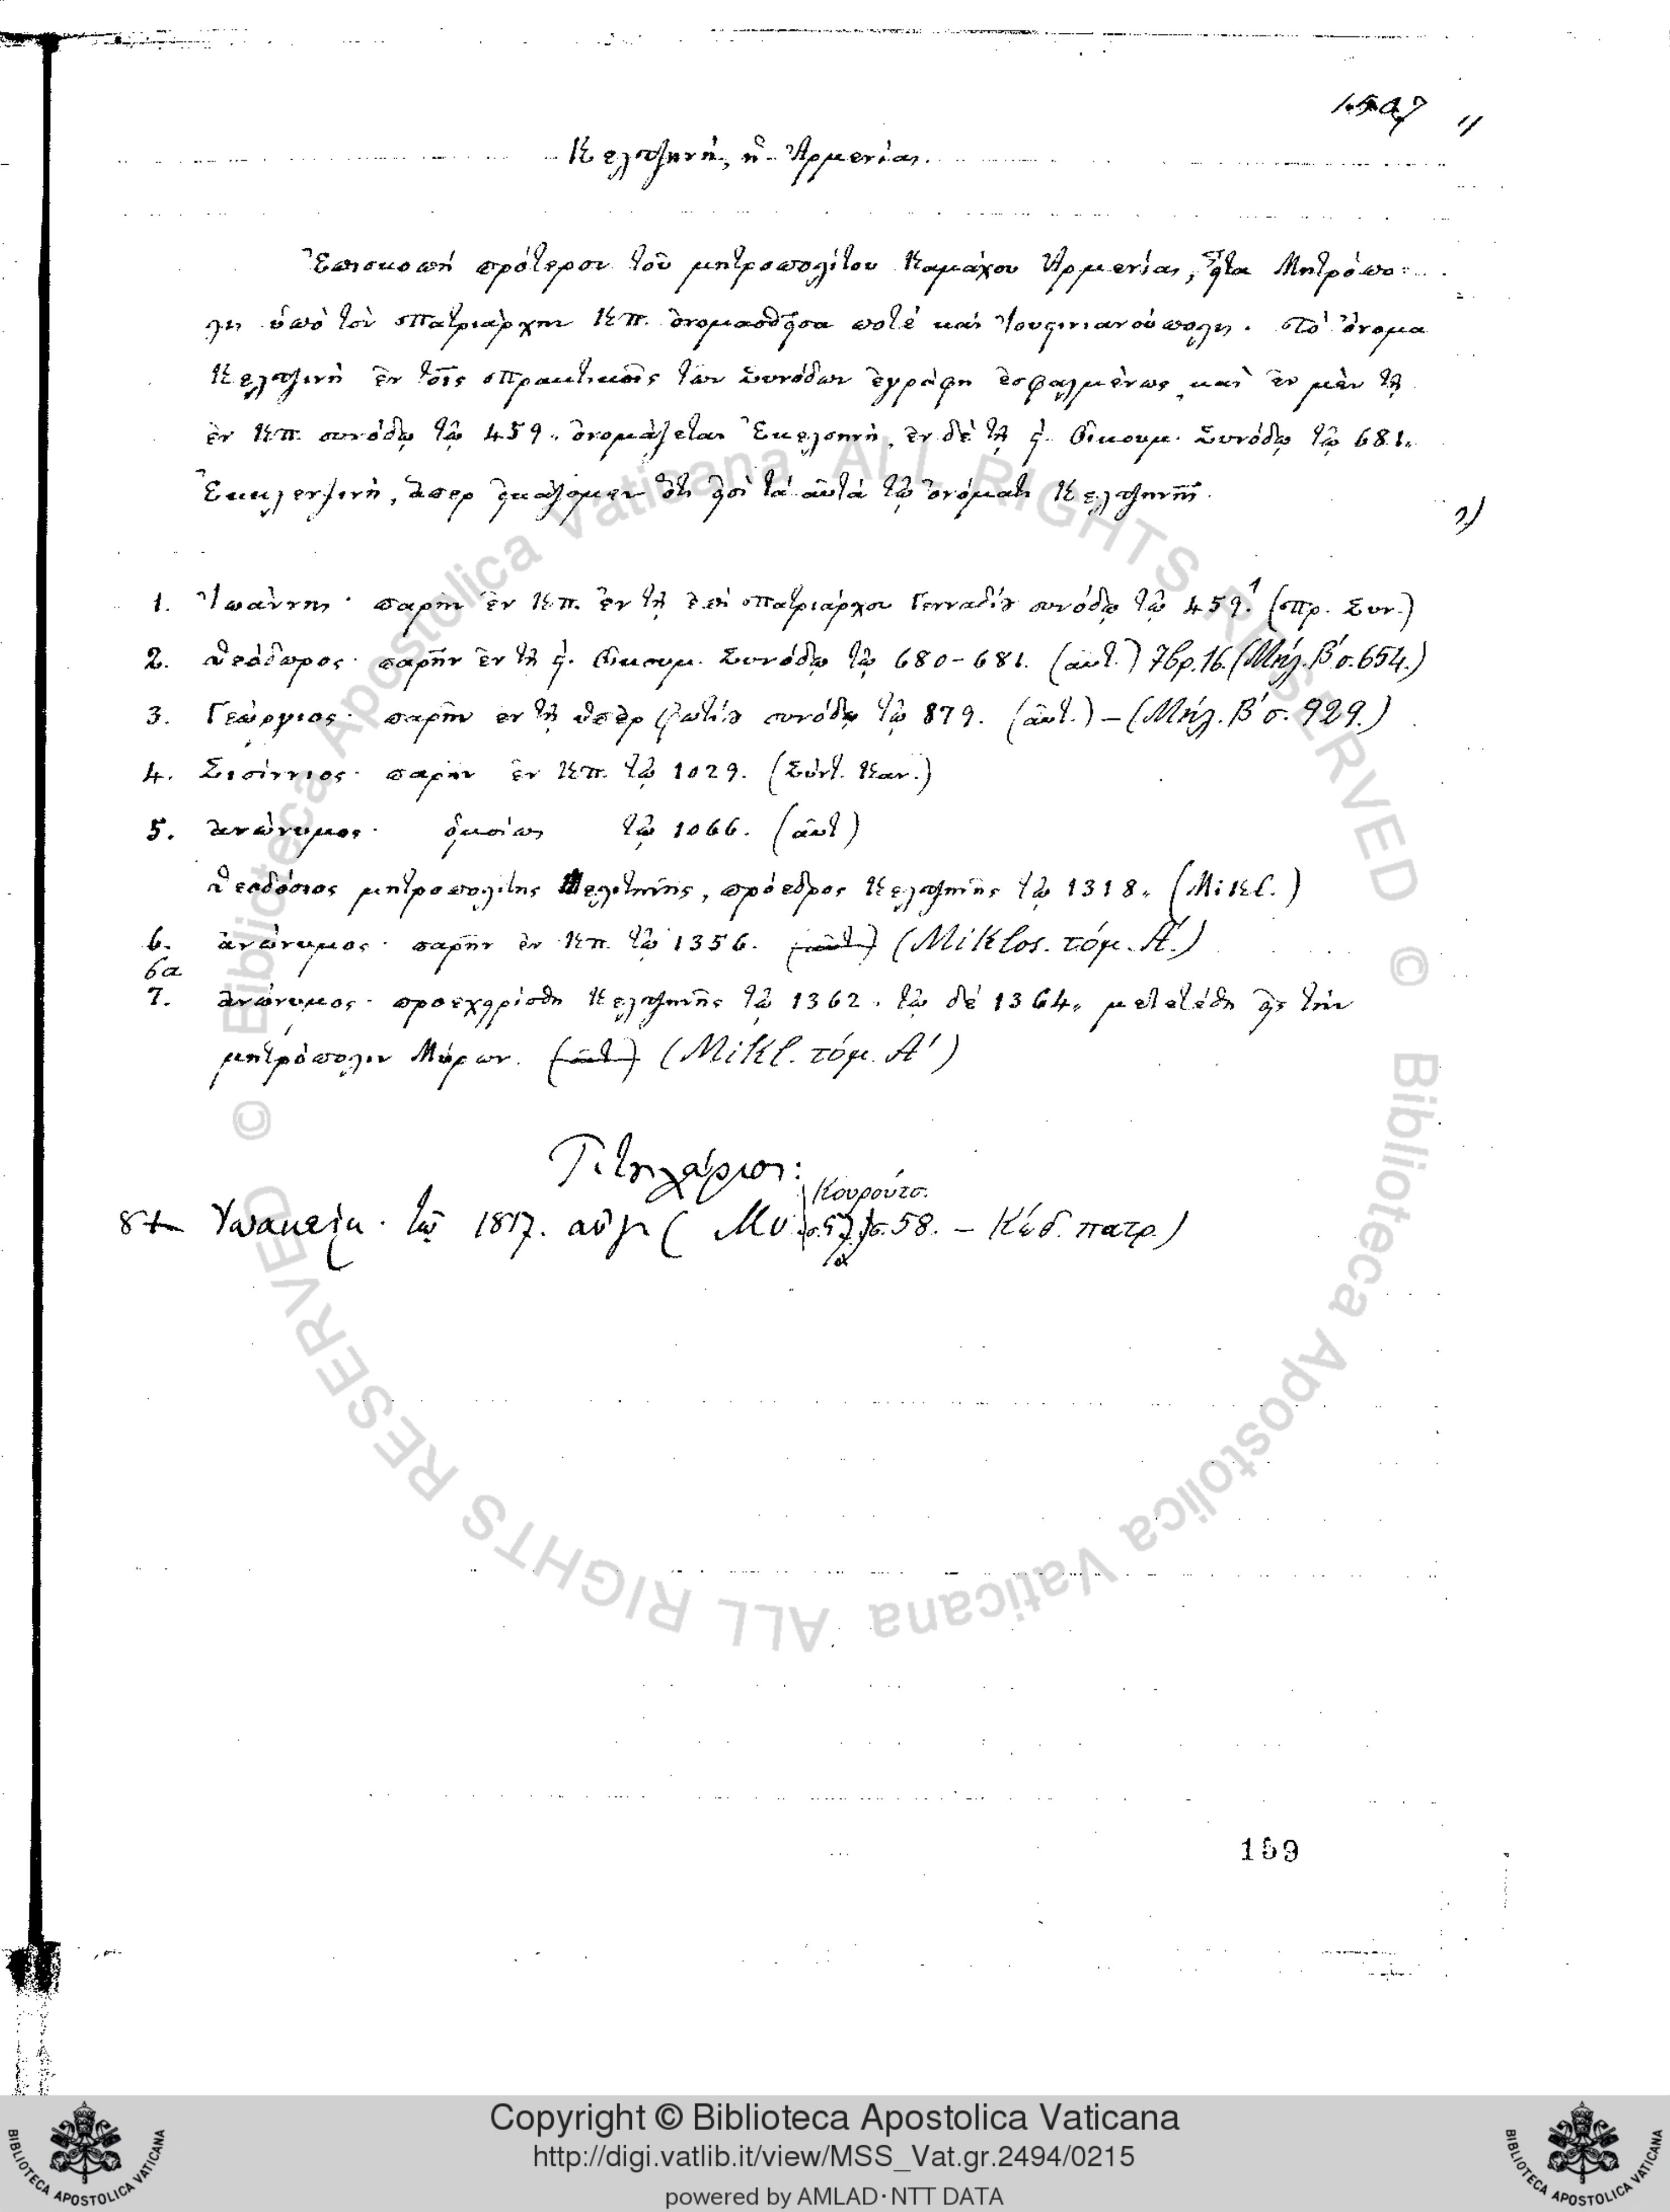 Κελτζηνή, ἡ Ἀρμενίας.
Ἐπισκοπή πρότερον τοῦ μητροπολίτου Καμάχου Ἀρμενίας, εἶτα Μητρόπο-
λις ὑπό τόν Πατριάρχην ΚΠ. ὀνομασθεῖσα ποτέ καί Ἰουστινιανούπολις. Τό ὄνομα
Κελτζινή ἐν τοῖς Πρακτικοῖς τῶν Συνόδων ἐγράφη ἐσφαλμένως, καί ἐν μέν τῇ
ἐν ΚΠ. συνόδῳ τῷ 459. ὀνομάζεται Ἐκελσηνή, ἐν δέ τῇ ϛ΄. Οἰκουμ. Συνόδῳ τῷ 681.
Ἐκκλενζινή, ἅπερ εἰκάζομεν ὅτι εἰσί τά αὐτά τῷ ὀνόματι Κελτζηνῆς.
1. Ἰωάννης· παρῆν ἐν ΚΠ. ἐν τῇ ἐπί Πατριάρχου Γενναδίου συνόδῳ τῷ 459. (Πρ. Συν.)
2. Θεόδωρος· παρῆν ἐν τῇ ϛ΄. Οἰκουμ. Συνόδῳ τῷ 680-681. (αὐτ.) 7βρ. 16. (Μήλ. Β΄ σ. 654.)
3. Γεώργιος· παρῆν ἐν τῇ ὑπέρ Φωτίου συνόδῳ τῷ 879. (αὐτ.) – (Μήλ. Β΄ σ. 929.)
4. Σισίννιος· παρῆν ἐν ΚΠ. τῷ 1029. (Σύντ. Καν.)
5. ἀνώνυμος· ὁμοίως τῷ 1066. (αὐτ)
Θεοδόσιος μητροπολίτης Μελιτηνῆς, πρόεδρος Κελτζηνῆς τῷ 1318. (Mikl.)
6. ἀνώνυμος· παρῆν ἐν ΚΠ. τῷ 1356. (αὐτ) (Miklos. τόμ. Α΄.)
6α
7. ἀνώνυμος· προεχειρίσθη Κελτζηνῆς τῷ 1362. τῷ δέ 1364. μετετέθη εἰς τήν
μητρόπολιν Μύρων. (αὐτ) (Mikl. τόμ. Α΄)
Τιτουλάριοι:
Κουρούτσ.
8 Ἰωακείμ· τῷ 1817. αὐγ ( Μυ σ. 57 σ. 58. – Κώδ. πατρ.)
159
Copyright © Biblioteca Apostolica Vaticana
http://digi.vatlib.it/view/MSS_Vat.gr.2494/0215
powered by AMLAD·NTT DATA
BIBLIOTECA APOSTOLICA VATICANA
BIBLIOTECA APOSTOLICA VATICANA
© Biblioteca Apostolica Vaticana ALL RIGHTS RESERVED
© Biblioteca Apostolica Vaticana ALL RIGHTS RESERVED